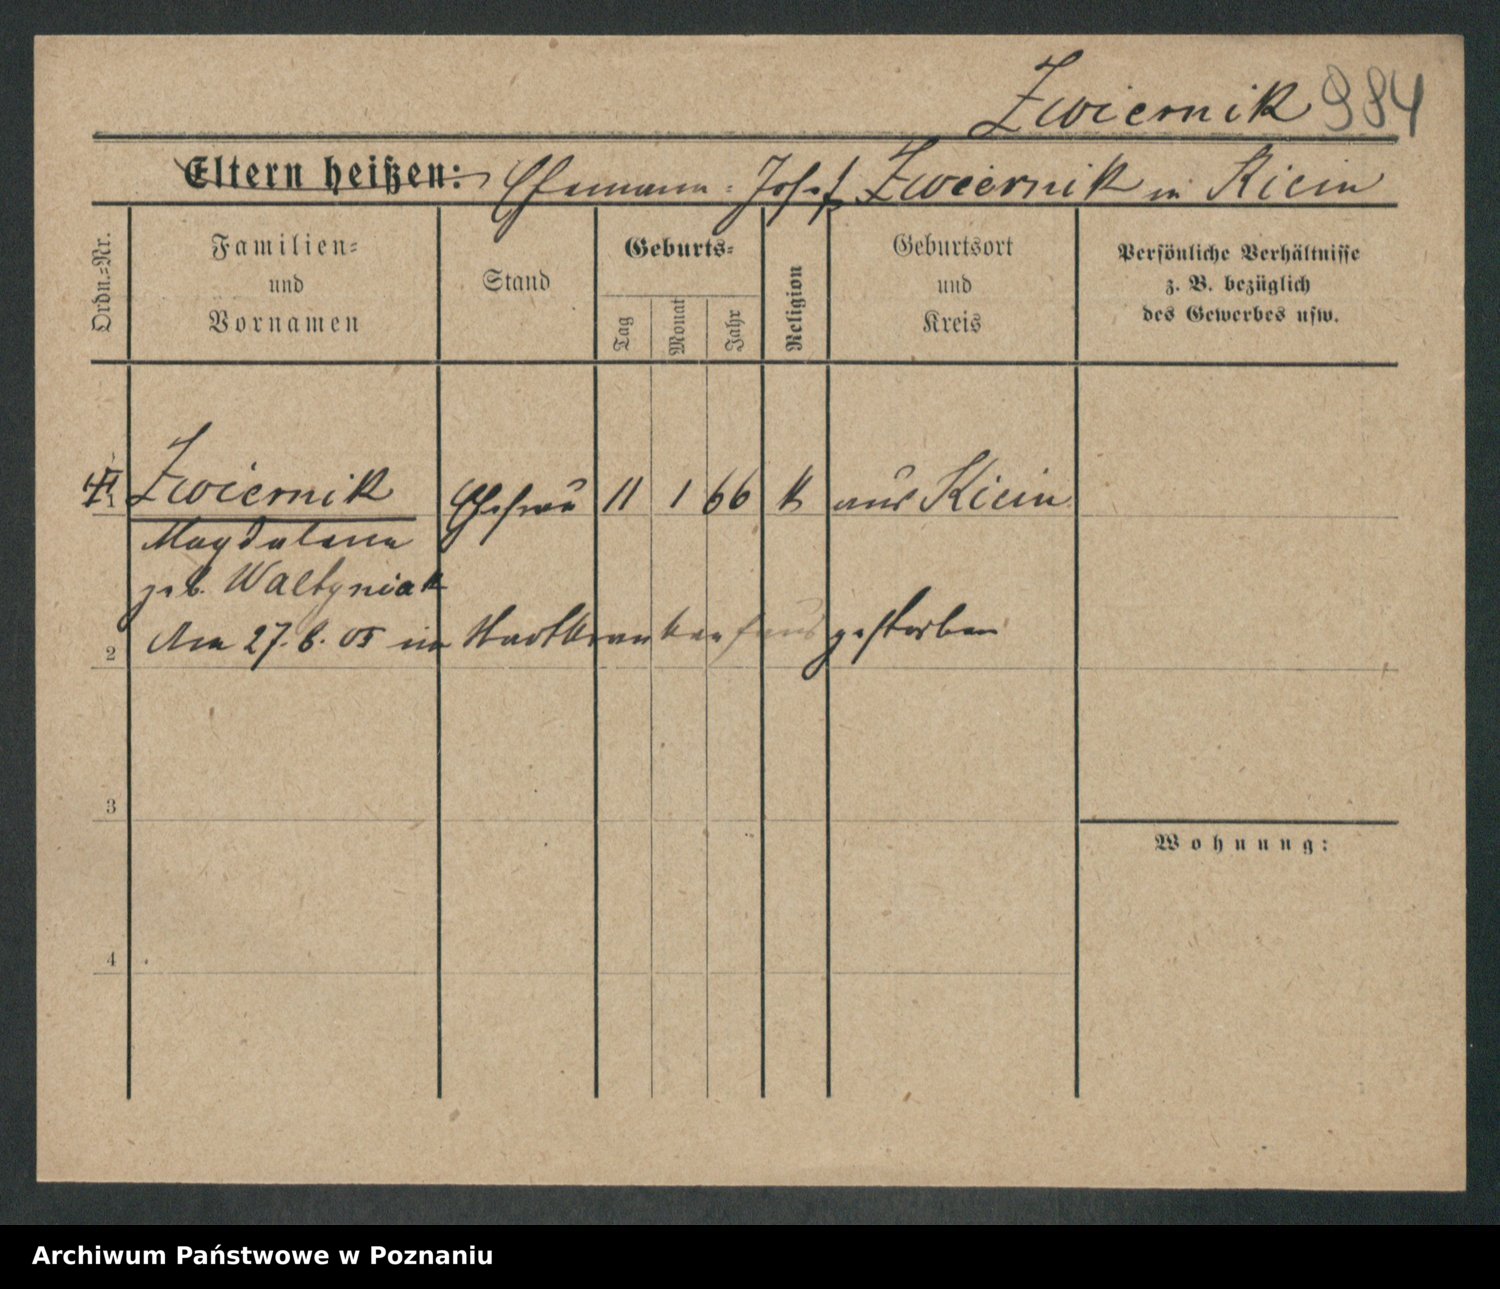 Zwiernik 984
Eltern heißen: Ehemann: Josef Zwiernik in Kicin
Ordn.=Nr.
Familien=
und
Vornamen
Stand
Geburts=
Tag
Monat
Jahr
Religion
Geburtsort
und
Kreis
Persönliche Verhältnisse
z. B. bezüglich
des Gewerbes usw.
Zwiernik Ehefrau 11 1 66 k aus Kicin
Magdalena
geb.
Am 27. 6. 05 im Stadtkrankenhaus gestorben
2
3
Wohnung:
4
Archiwum Państwowe w Poznaniu